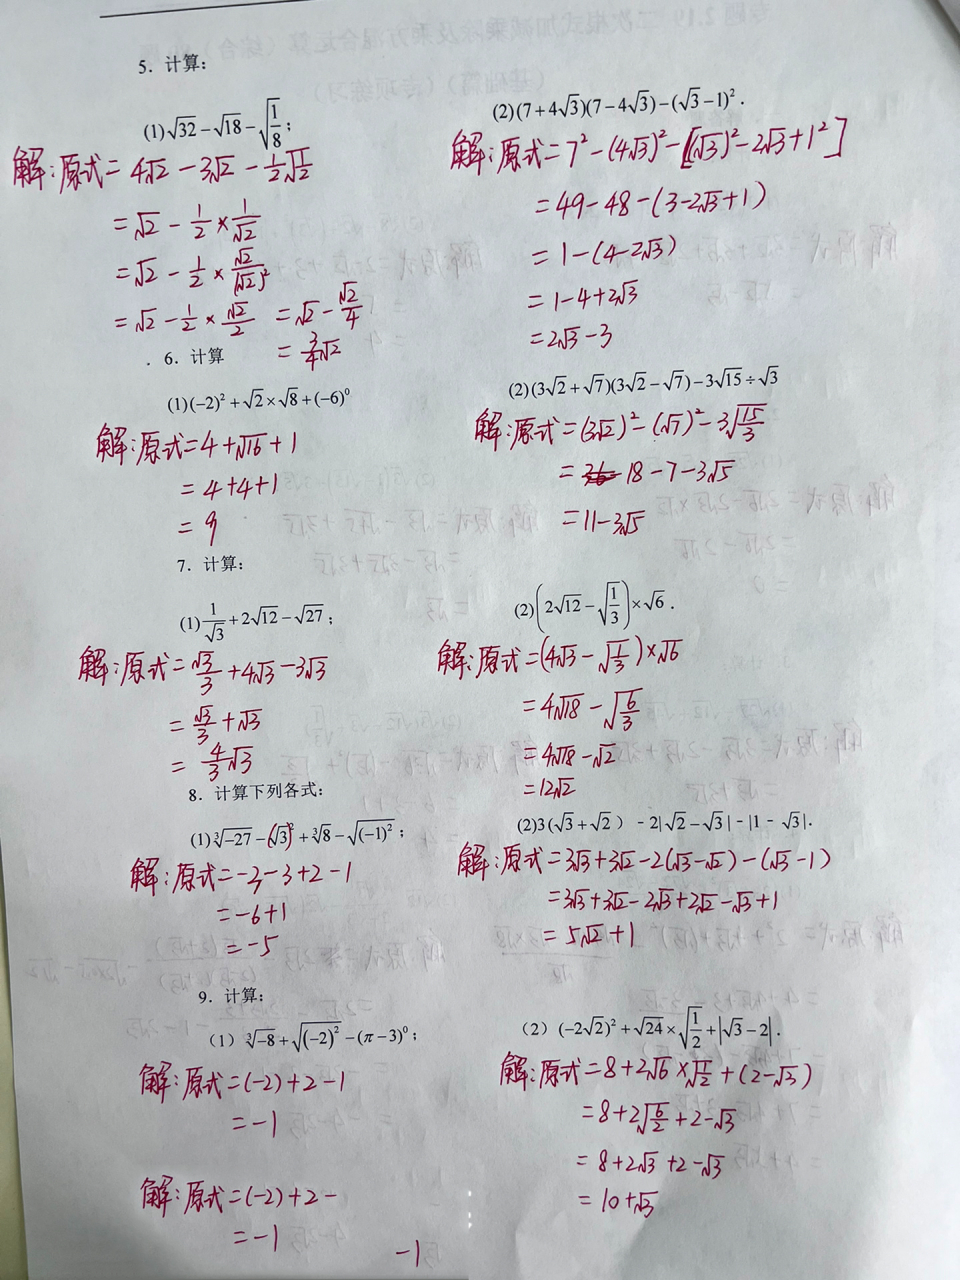 5. 计算:
(1)√32－√18－√(1/8);
解:原式=4√2－3√2－(1/2)√(1/2)
=√2－1/2×1/√2
=√2－1/2×√2/(√2)²
=√2－1/2×√2/2
=√2－√2/4
=3/4√2
(2)(7+4√3)(7－4√3)－(√3－1)².
解:原式=7²－(4√3)²－[(√3)²－2√3+1²]
=49－48－(3－2√3+1)
=1－(4－2√3)
=1－4+2√3
=2√3－3
. 6. 计算
(1)(－2)²+√2×√8+(－6)⁰
解:原式=4+√16+1
=4+4+1
=9
(2)(3√2+√7)(3√2－√7)－3√15÷√3
解:原式=(3√2)²－(√7)²－3√(15/3)
=18－7－3√5
=11－3√5
7. 计算:
(1)1/√3+2√12－√27;
解:原式=√3/3+4√3－3√3
=√3/3+√3
=4/3√3
(2)(2√12－√(1/3))×√6.
解:原式=(4√3－√(1/3))×√6
=4√18－√(6/3)
=4√18－√2
=12√2
8. 计算下列各式:
(1)∛－27－(√3)²+∛8－√(－1)²;
解:原式=－3－3+2－1
=－6+1
=－5
(2)3(√3+√2)－2|√2－√3|－|1－√3|.
解:原式=3√3+3√2－2(√3－√2)－(√3－1)
=3√3+3√2－2√3+2√2－√3+1
=5√2+1
9. 计算:
(1)∛－8+√(－2)²－(π－3)⁰;
解:原式=(－2)+2－1
=－1
解:原式=(－2)+2－
=－1
－1
(2)(－2√2)²+√24×√(1/2)+|√3－2|.
解:原式=8+2√6×√(1/2)+(2－√3)
=8+2√(6/2)+2－√3
=8+2√3+2－√3
=10+√3